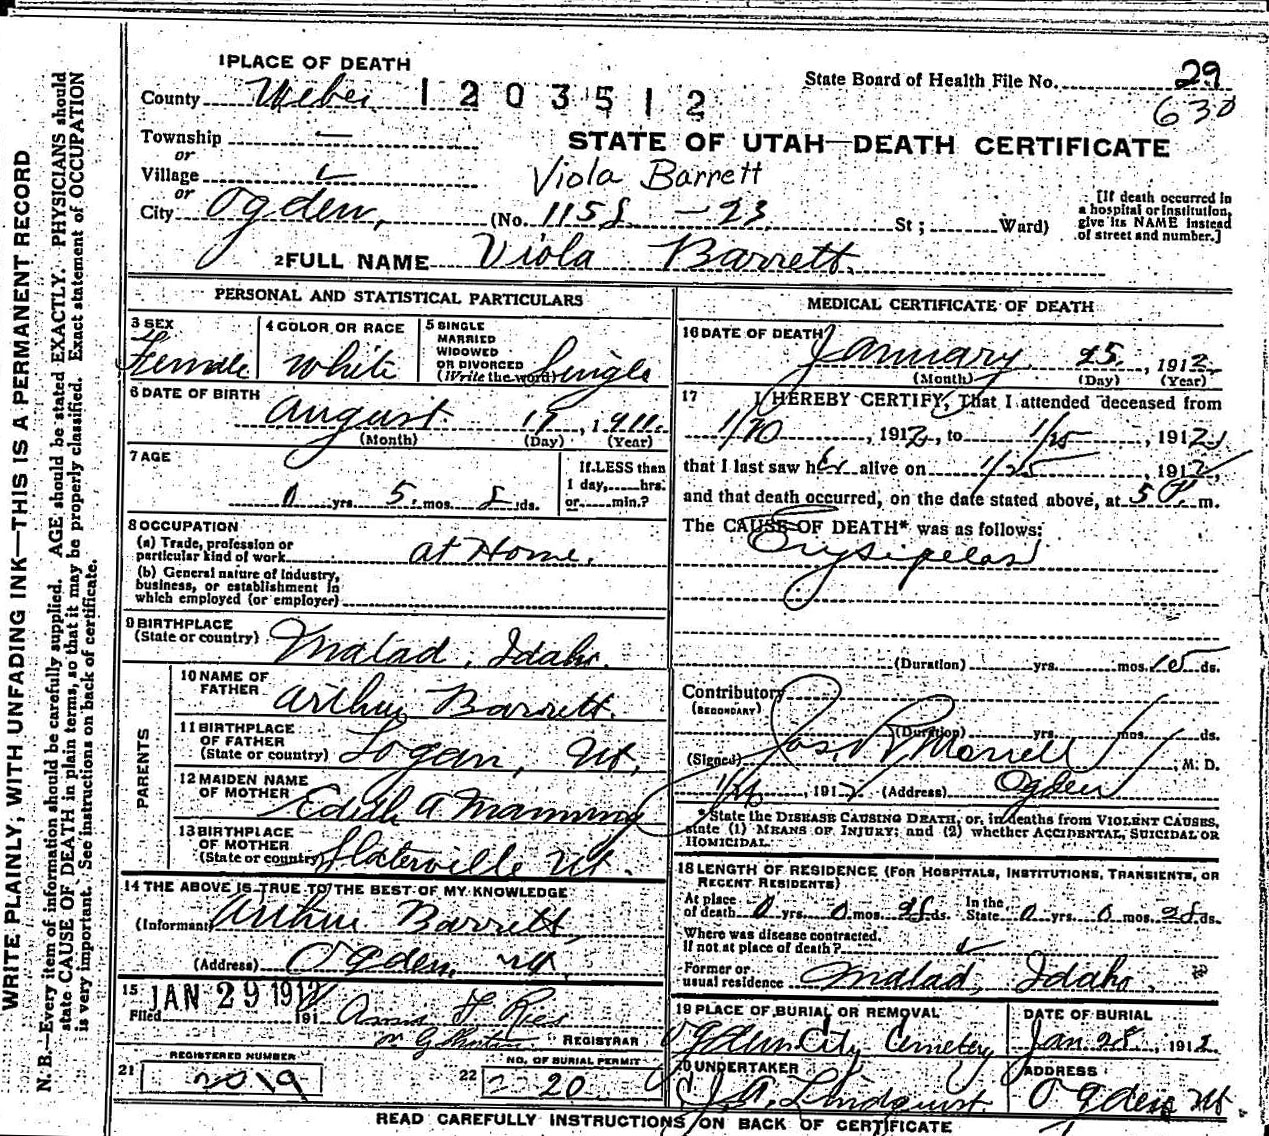 WRITE PLAINLY, WITH UNFADING INK—THIS IS A PERMANENT RECORD
N. B.—Every item of information should be carefully supplied. AGE should be stated EXACTLY. PHYSICIANS should
state CAUSE OF DEATH in plain terms, so that it may be properly classified. Exact statement of OCCUPATION
is very important. See instructions on back of certificate.
1 PLACE OF DEATH
State Board of Health File No. 29
County Weber 1203512
630
Township —
STATE OF UTAH—DEATH CERTIFICATE
or
Village
Viola Barrett
or
City Ogden, (No. 1158 - 23 St; Ward)
[If death occurred in
a hospital or institution,
give its NAME instead
of street and number.]
2 FULL NAME Viola Barrett
PERSONAL AND STATISTICAL PARTICULARS
3 SEX
Female
4 COLOR OR RACE
White
5 SINGLE
MARRIED
WIDOWED
OR DIVORCED
(Write the word) Single
6 DATE OF BIRTH
August 17, 1911.
(Month) (Day) (Year)
7 AGE
0 yrs. 5 mos. 8 ds.
If LESS than
1 day, hrs.
or min.?
8 OCCUPATION
(a) Trade, profession or
particular kind of work at Home.
(b) General nature of industry,
business, or establishment in
which employed (or employer)
9 BIRTHPLACE
(State or country) Malad, Idaho.
PARENTS
10 NAME OF
FATHER Arthur Barrett.
11 BIRTHPLACE
OF FATHER
(State or country) Logan, Ut,
12 MAIDEN NAME
OF MOTHER Edith A Manning
13 BIRTHPLACE
OF MOTHER
(State or country) Slaterville Ut.
14 THE ABOVE IS TRUE TO THE BEST OF MY KNOWLEDGE
(Informant) Arthur Barrett,
(Address) Ogden, Ut,
15
Filed JAN 29 1912 191
REGISTRAR
21 REGISTERED NUMBER
22 NO. OF BURIAL PERMIT
20
MEDICAL CERTIFICATE OF DEATH
16 DATE OF DEATH
January 25, 1912
(Month) (Day) (Year)
17 I HEREBY CERTIFY, That I attended deceased from
1/20, 1912, to 1/25, 1912
that I last saw her alive on 1/25, 1912
and that death occurred, on the date stated above, at 5 P. m.
The CAUSE OF DEATH* was as follows:
Erysipelas
(Duration) yrs. mos. 15 ds.
Contributory
(SECONDARY)
(Duration) yrs. mos. ds.
(Signed) Jas. R Morrell, M. D.
1/26, 1912 (Address) Ogden
* State the DISEASE CAUSING DEATH, or, in deaths from VIOLENT CAUSES,
state (1) MEANS OF INJURY; and (2) whether ACCIDENTAL, SUICIDAL OR
HOMICIDAL.
18 LENGTH OF RESIDENCE (FOR HOSPITALS, INSTITUTIONS, TRANSIENTS, OR
RECENT RESIDENTS)
At place
of death 0 yrs. 0 mos. 28 ds. In the
State 0 yrs. 0 mos. 28 ds.
Where was disease contracted,
If not at place of death?
Former or
usual residence Malad, Idaho.
19 PLACE OF BURIAL OR REMOVAL
Ogden City Cemetery
DATE OF BURIAL
Jan 28, 1912
20 UNDERTAKER
J. A. Lindquist.
ADDRESS
Ogden Ut
READ CAREFULLY INSTRUCTIONS ON BACK OF CERTIFICATE